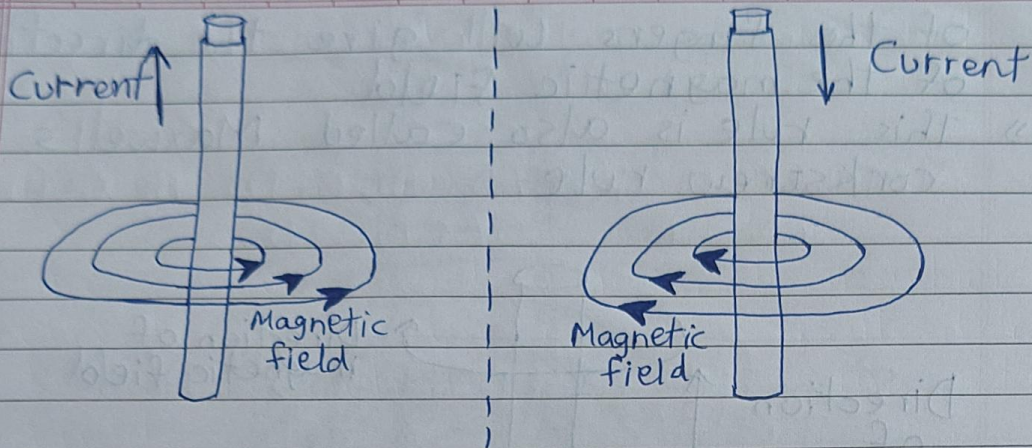 Current
Magnetic
field
Current
Magnetic
field